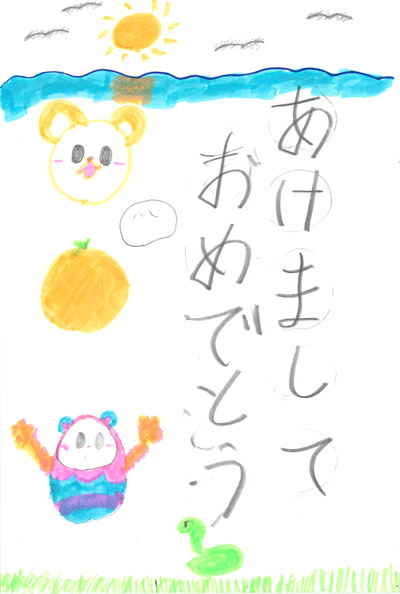 あけまして
おめでとう